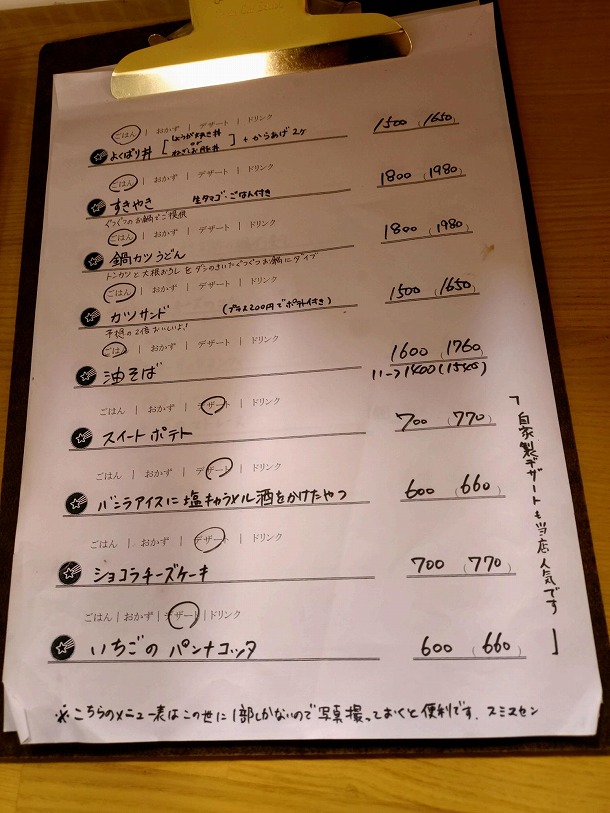 ごはん | おかず | デザート | ドリンク
よくばり丼 [しょうが焼き丼 or ねぎしお豚丼] + からあげ2ケ 1500 (1650)
ごはん | おかず | デザート | ドリンク
すきやき 生タマゴ・ごはん付き 1800 (1980)
ぐつぐつのお鍋でご提供
ごはん | おかず | デザート | ドリンク
鍋カツうどん 1800 (1980)
トンカツと大根おろしをダシのきいたぐつぐつお鍋にダイブ
ごはん | おかず | デザート | ドリンク
カツサンド (プラス200円でポテト付き) 1500 (1650)
予想の2倍おいしいよ!
ごはん | おかず | デザート | ドリンク
油そば 1600 (1760)
1400 (1540)
ごはん | おかず | デザート | ドリンク
スイートポテト 700 (770)
ごはん | おかず | デザート | ドリンク
バニラアイスに塩キャラメル酒をかけたやつ 600 (660)
ごはん | おかず | デザート | ドリンク
ショコラチーズケーキ 700 (770)
ごはん | おかず | デザート | ドリンク
いちごの パンナコッタ 600 (660)
「自家製デザートも当店人気です」
※こちらのメニュー表はこの世に1部しかないので写真撮っておくと便利です。スミスセン